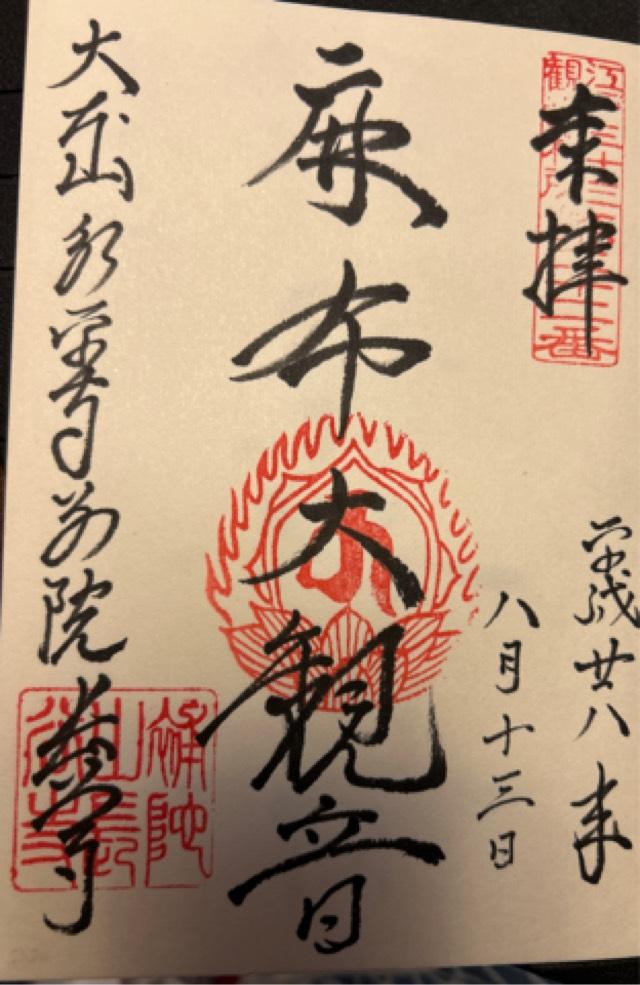 奉拝
平成廿八年
八月十三日
麻布大観音
大本山永平寺別院長谷寺
補陀山長谷寺